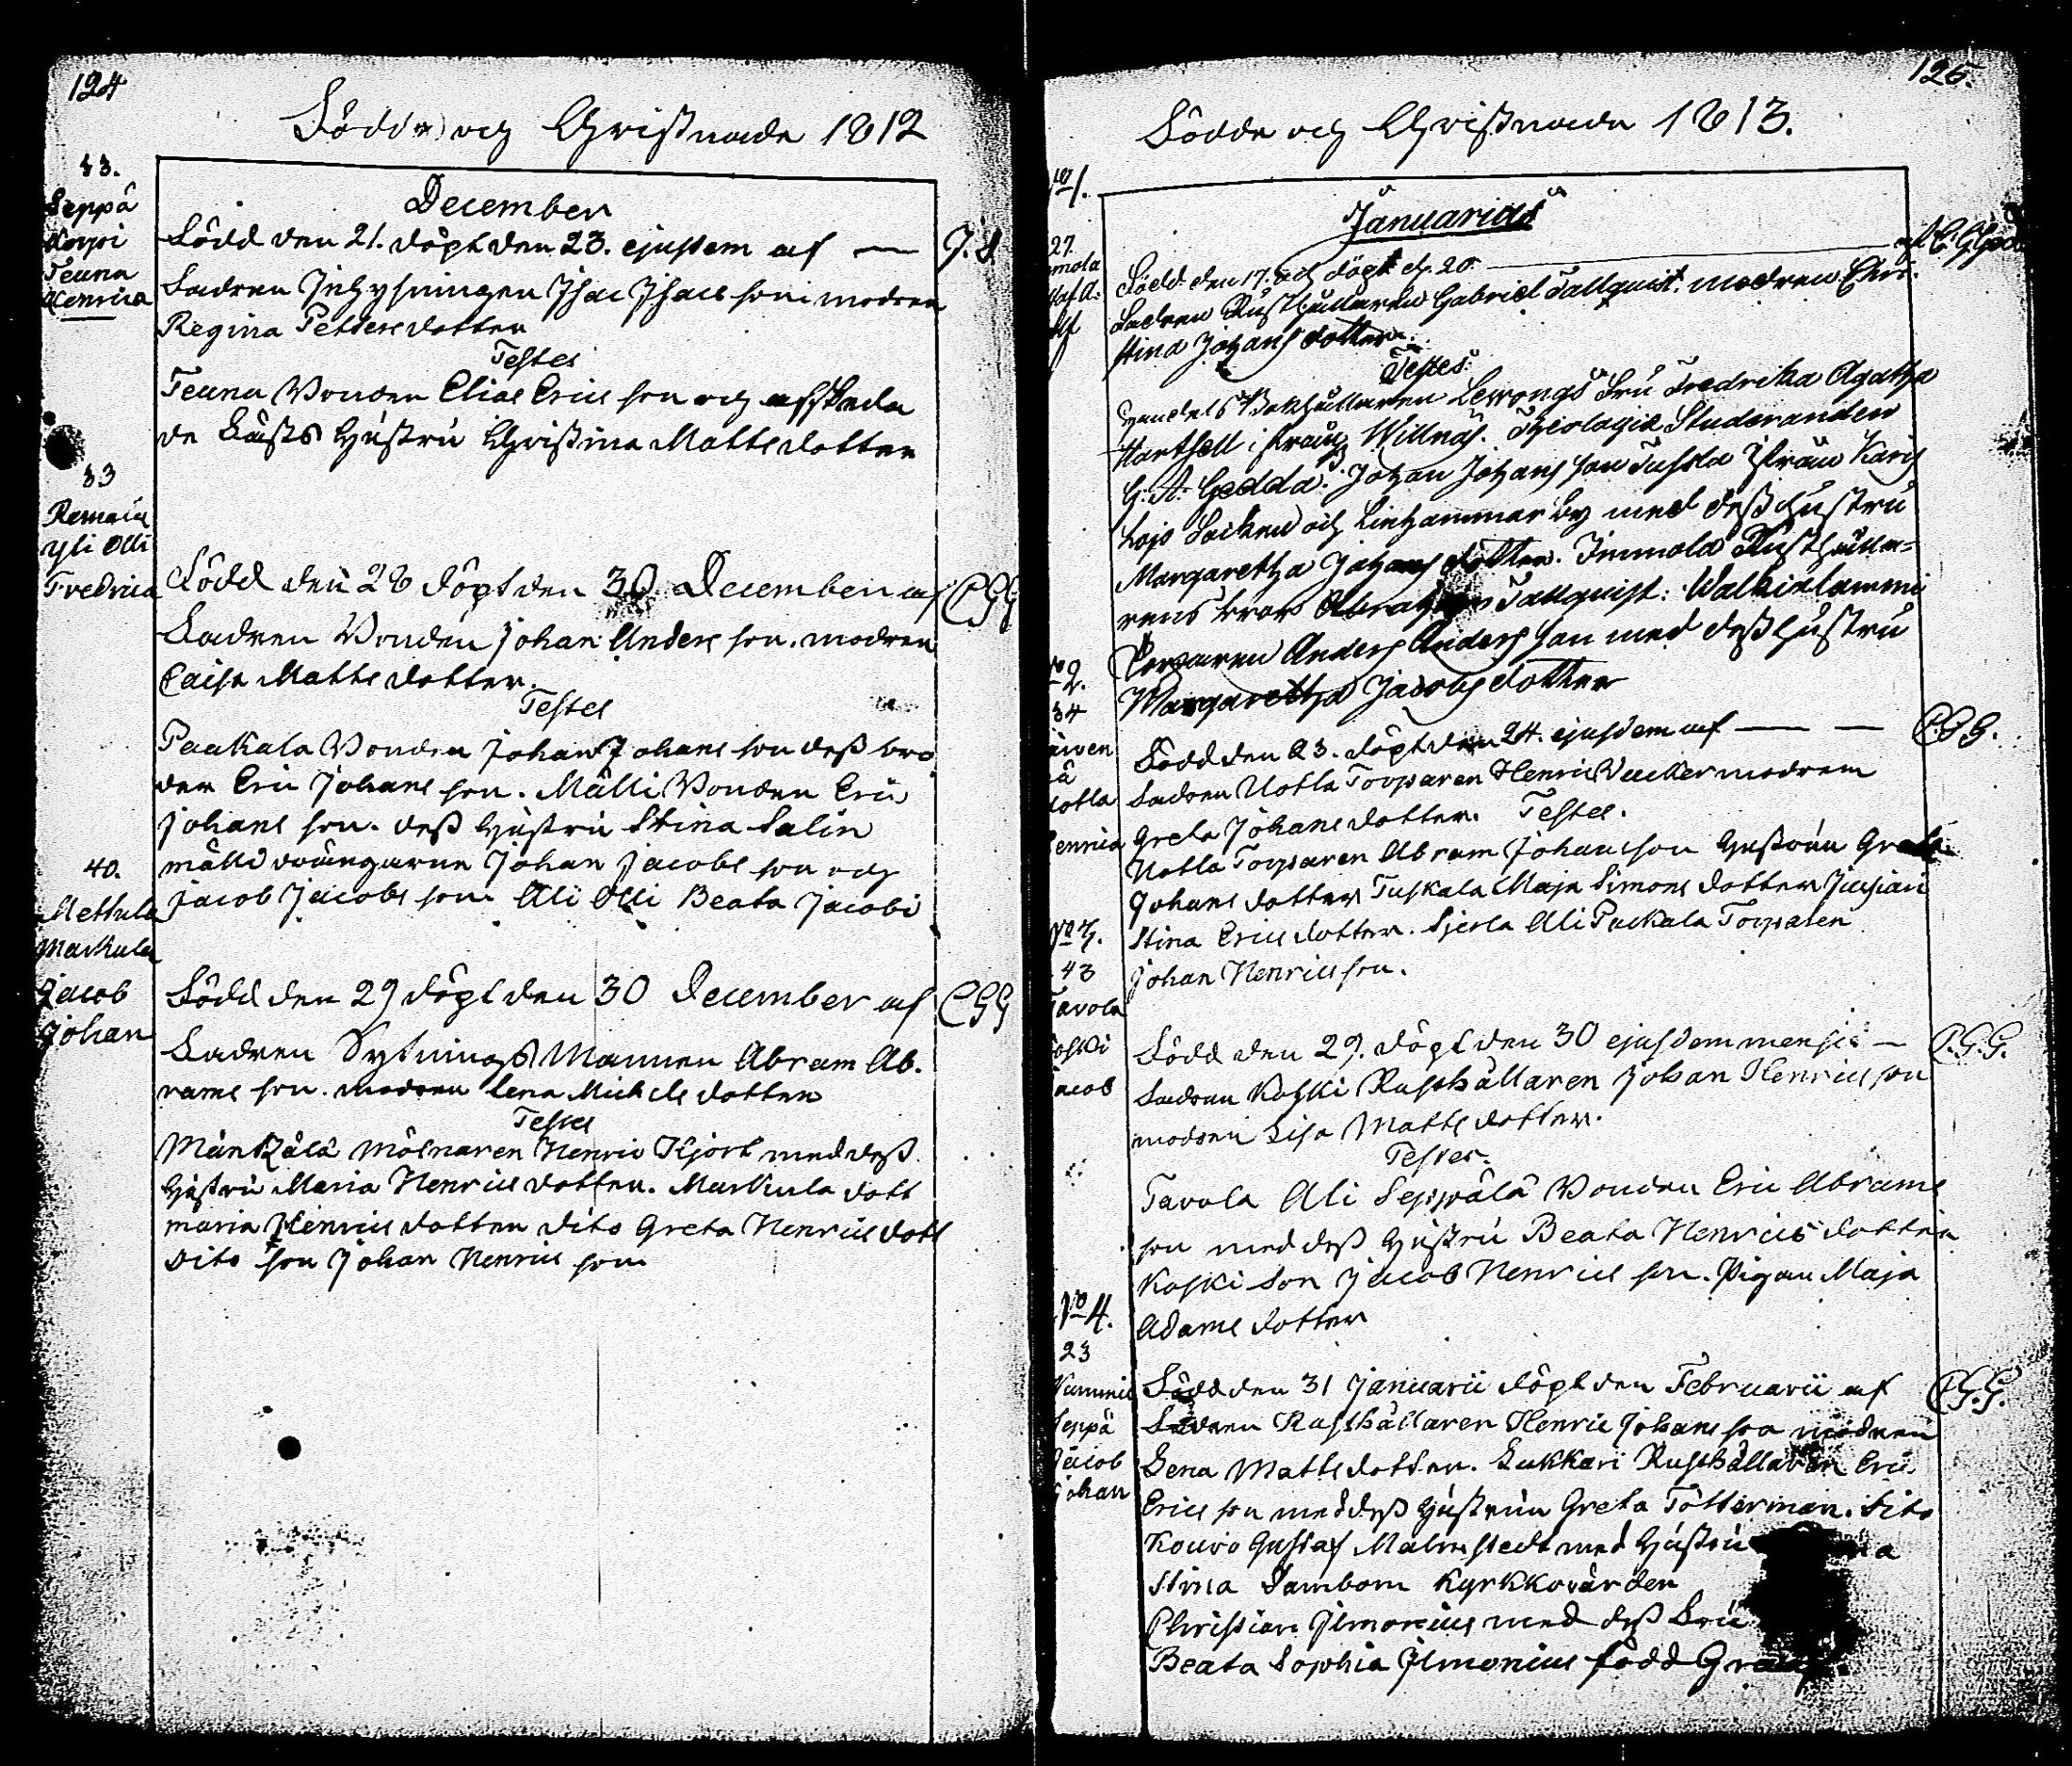 124
Födde och Christnade 1812
83.
Seppä
Korpi
Teuna
Henrica
December
Född den 21. döpt den 23. ejusdem af — J. S.
Fadren Inhysningen Isac Isacs son modren
Regina Petters dotter
Testes
Teuna Bonden Elias Erics son och afskeda
de Hustru Christina Matts dotter
83
Yli Olli
Fredrica
Född den 28 döpt den 30. December af CGG
Fadren Bonden Johan Anders son. modren
Caisa Matts dotter.
Testes
Paakala Bonden Johan Johans son dess bro
der Eric Johans son. Mälli Bonden Eric
Johans son. dess Hustru Stina Salin
mälli drängarne Johan Jacobs son och
Jacob Jacobs son Ali Olli Beata Jacobs
40.
Mettula
Markula
Jacob
Johan
Född den 29 döpt den 30 December af CGG
Fadren Sytnings Mannen Abram Ab.
rams son. modren Lena Michels dotter
Testes
Mäntzälä mölnaren Henric Hjort med dess
Hustru Maria Henrics dotter. Markula dott
maria Henrics dotter dito Greta Henrics dott
dito son Johan Henrics son
125.
Födde och Christnade 1813.
No 1.
27.
mola
Januarius
Född den 17. och döpt d. 20. — af C. G.
Fadren Rusthållaren Gabriel Tallquist. modren Chri-
stina Johans dotter.
Testes:
Handels Bokhållaren Fru Fredrika Agatha
från Willnäs. Theologiæ Studeranden
G: A: Gedda. Johan Johans son från Karis
Lojo Socken och by med dess hustru
Margaretha Johans dotter. Immola Rusthålla-
rens bror Tallquist: Walkialammi
Torparen Anders Anders son med dess hustru
Margaretha Jacobs dotter
No 2.
34
Notla
Henrica
Född den 23. döpt den 24. ejusdem af — — C.G.G.
Fadren Notla Torparen Henric modren
Greta Johans dotter. Testes.
Notla Torparen Abram Johans son Hustrun Greta
Johans dotter Tuskala Maja Simons dotter
Stina Erics dotter. Ali Paukala Torparen
Johan Henrics son.
No 3.
43
Tavola
Koski
Jacob
Född den 29. döpt den 30 ejusdem mensis — C.G.G.
Fadren Koski Rusthållaren Johan Henrics son
modren Lisa Matts dotter.
Testes.
Tavola Ali Seppälä Bonden Eric Abrams
son med dess Hustru Beata Henrics dotter
Koski Son Jacob Henrics son. Pigan Maja
Adams dotter
No 4.
23
Nummis
Seppä
Jacob
Johan
Född den 31 Januarii döpt den Februarii af C.G.G.
Fadren Rusthållaren Henric Johans son modren
Lena Matts dotter. Lukkari Rusthållaren Eric
Erics son med dess Hustrun Greta Tötterman. dito
Kouvo Gustaf Malmstedt med Hustru
Stina Sambom Kyrkkovärden
Christian Ilmonius med dess Fru
Beata Sophia Ilmonius född